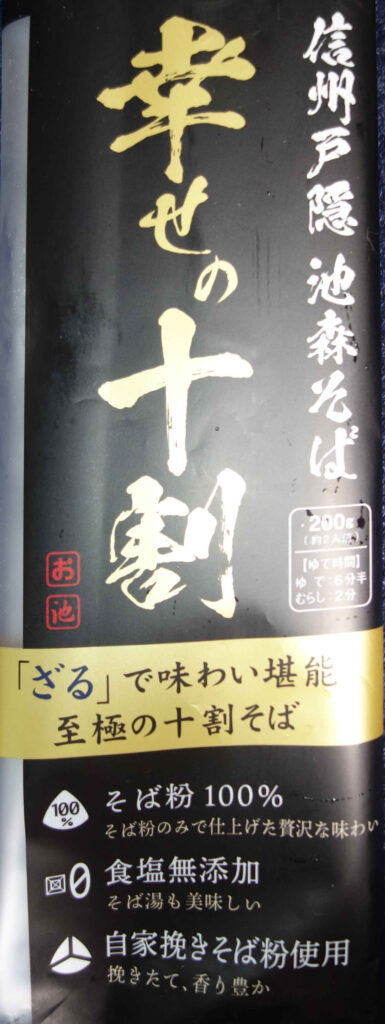 信州戸隠 池森そば
幸せの十割
200g
(約2人前)
【ゆで時間】
ゆで:6分半
むらし:2分
お
池
「ざる」で味わい堪能
至極の十割そば
100
%
そば粉100%
そば粉のみで仕上げた贅沢な味わい
0
食塩無添加
そば湯も美味しい
自家挽きそば粉使用
挽きたて、香り豊か